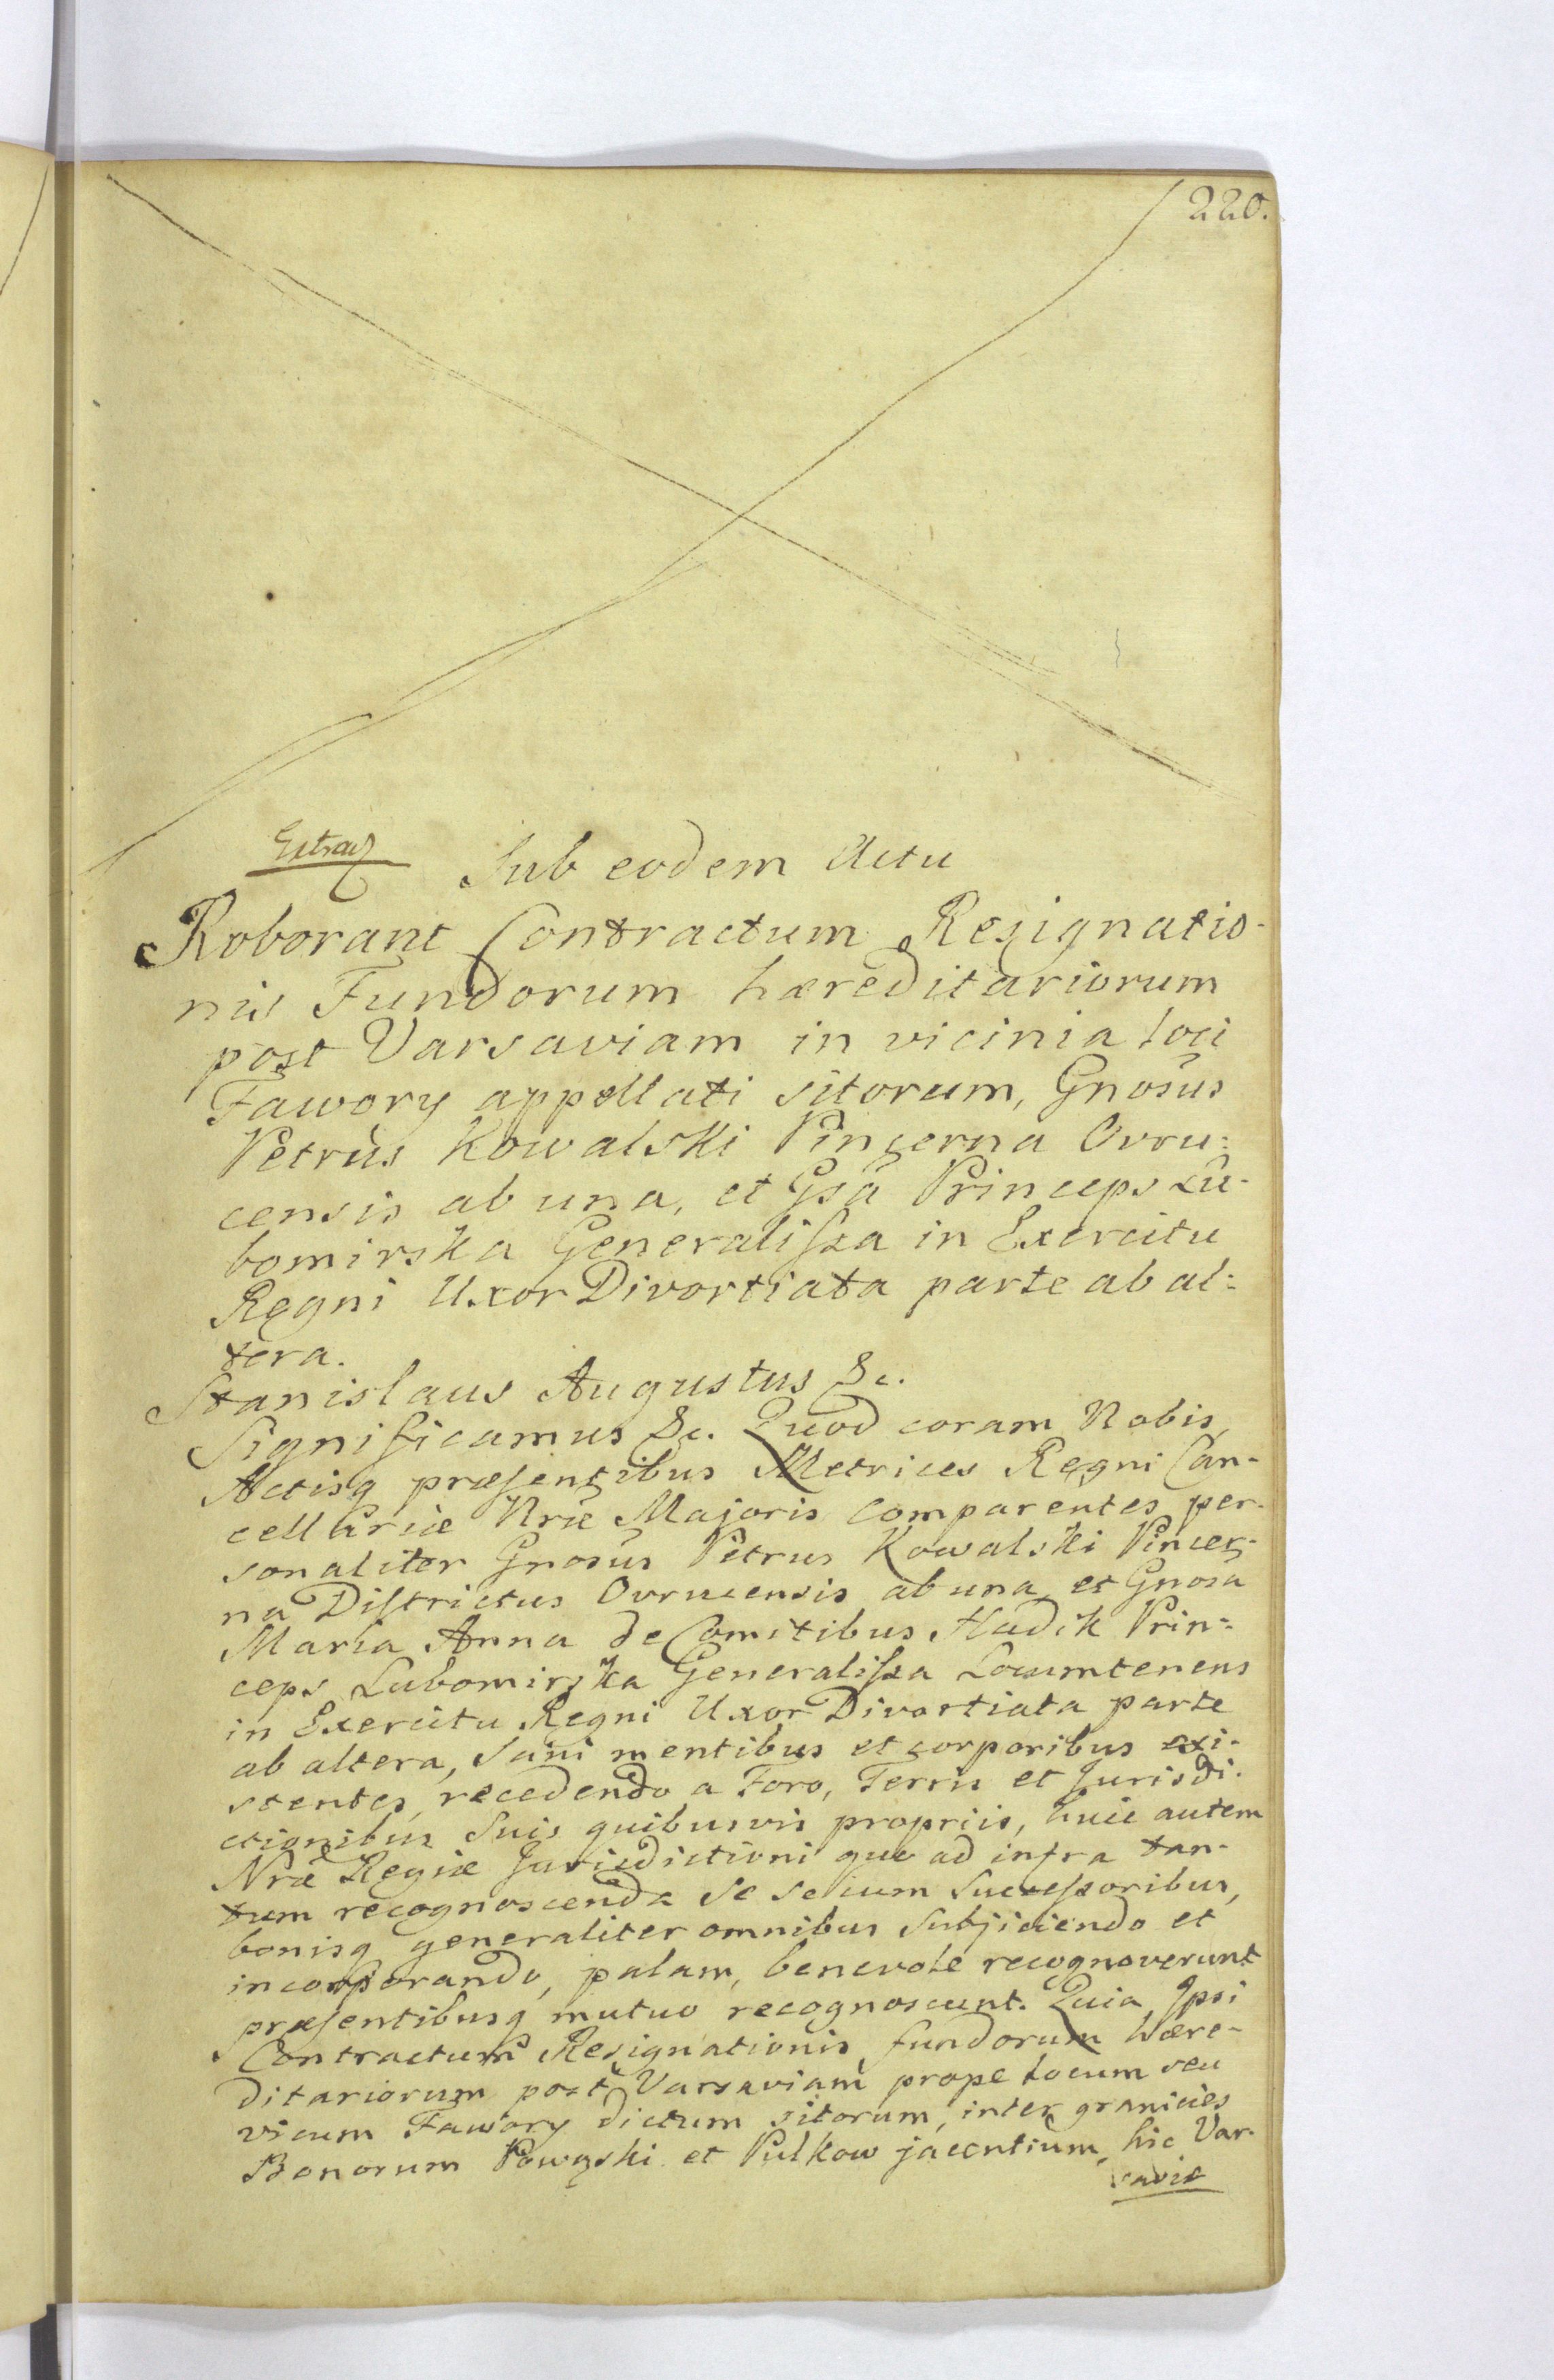 220.
Extrad
Sub eodem Actu
Roborant Contractum Resignatio-
nis Fundorum hæreditariorum
post Varsaviam in vicinia loci
Fawory appellati sitorum, Gnosus
Petrus Kowalski Pincerna Ovru-
censis ab una, et Gsa Princeps Lu-
bomirska Generalissa in Exercitu
Regni Uxor Divortiata parte ab al-
tera.
Stanislaus Augustus &c.
Significamus &c. Quod coram Nobis,
Actisq præsentibus Metrices Regni Can-
cellariæ Nræ Majoris comparentes per-
sonaliter Gnosus Petrus Kowalski Pincer-
na Districtus Ovrucensis ab una et Gnosa
Maria Anna de Comitibus Hadik Prin-
ceps Lubomirska Generalissa Locumtenens
in Exercitu Regni Uxor Divortiata parte
ab altera, sani mentibus et corporibus exi-
stentes, recedendo a Foro, Terris et Jurisdi-
ctionibus suis quibusvis propriis, huic autem
Nræ Regiæ Jurisdictioni quo ad infra tan-
tum recognoscenda se se cum Successoribus,
bonisq generaliter omnibus subjiciendo et
incorporando, palam, benevole recognoverunt
præsentibusq mutuo recognoscunt. Quia Ipsi
Contractum Resignationis fundorum hære-
ditariorum post Varsaviam prope locum seu
vicum Fawory dictum sitorum, inter granicies
Bonorum Powązki et Pulkow jacentium, hic Var-
saviæ